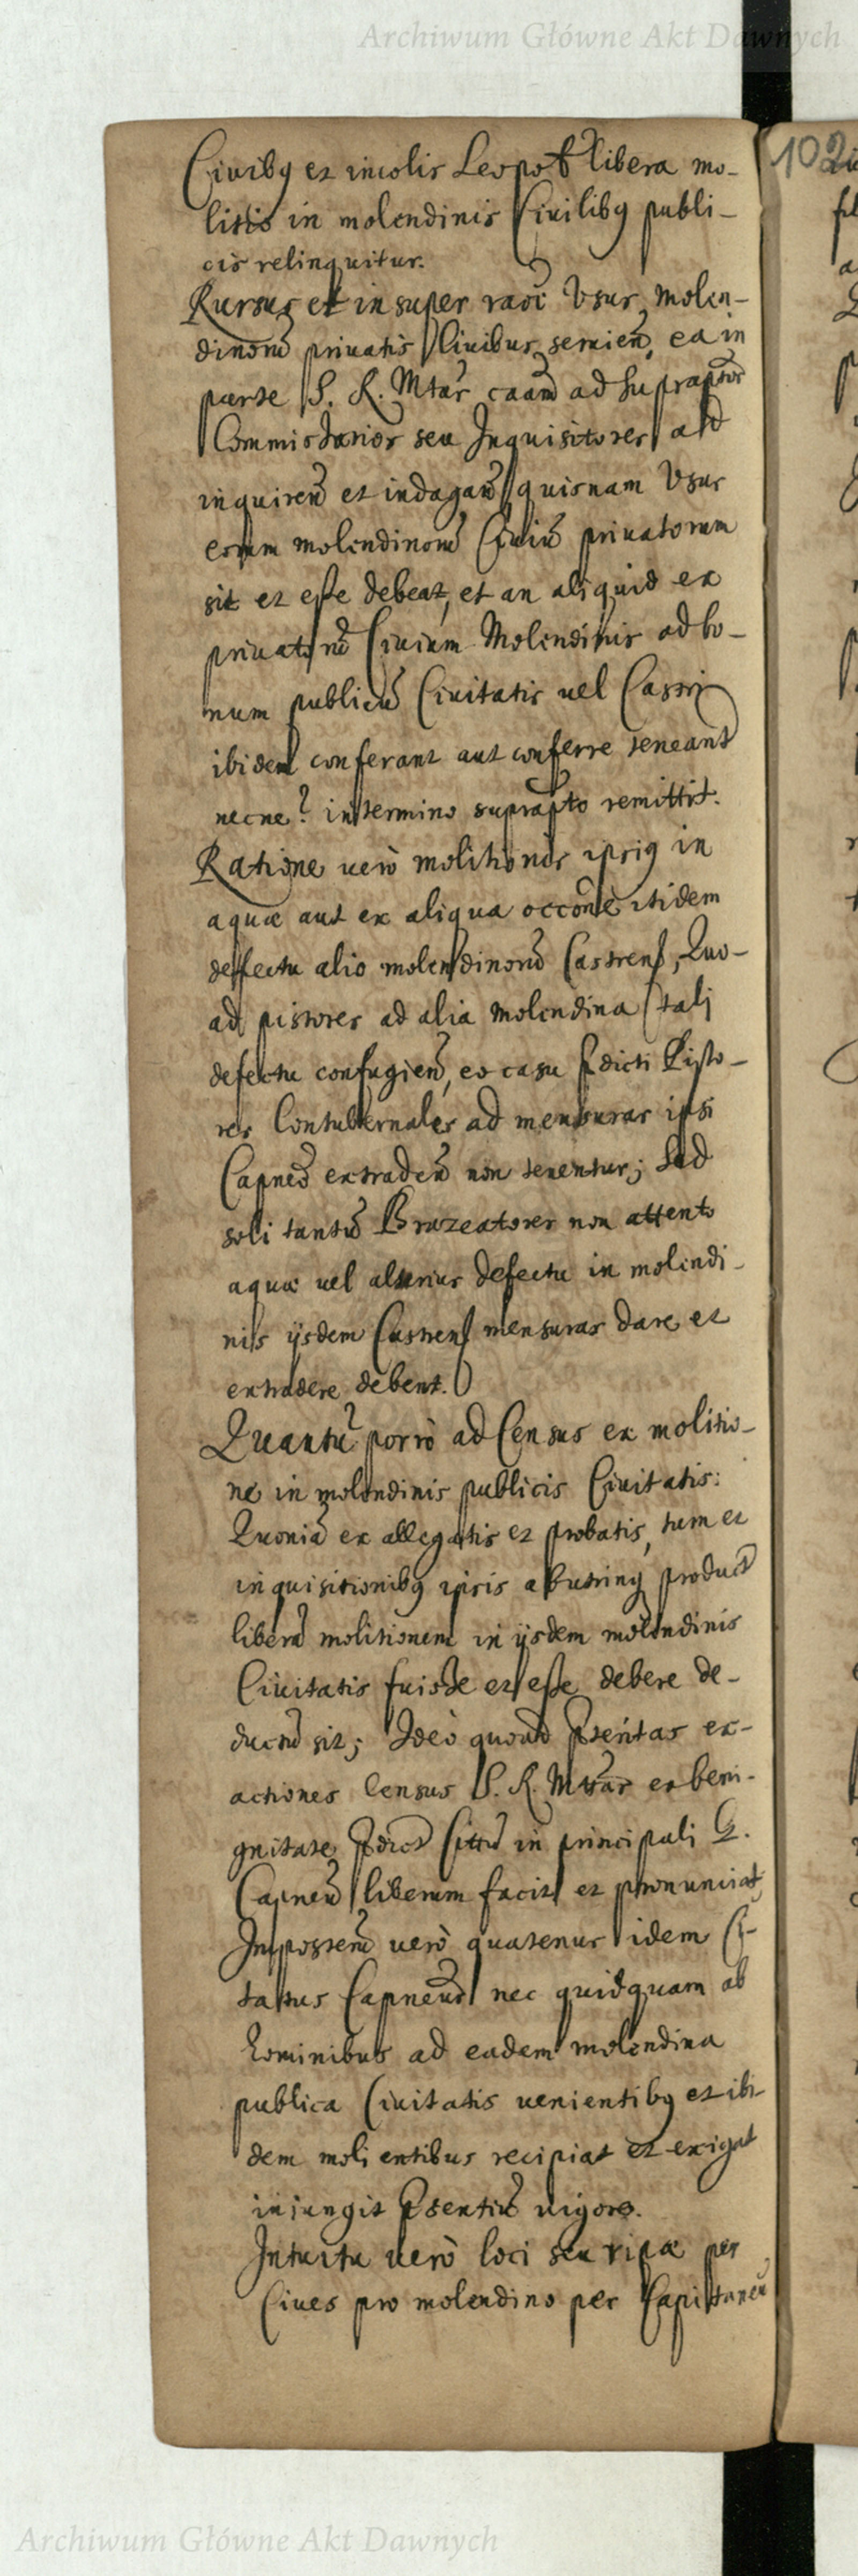 Archiwum Główne Akt Dawnych
102
Civibus et incolis Leopol libera mo-
litio in molendinis Civilibus publi-
cis relinquitur.
Rursus et insuper raõe Usus molen-
dinorũ privatis Civibus servieñ, ea in
parte S. R. Mtas caam ad supraptos
Commissarios seu Inquisitores ad
inquirenđ et indaganđ quisnam Usus
eorum molendinorũ Civiũ privatorum
sit et esse debeat, et an aliquid ex
privatorũ Civium Molendinis ad bo-
num publicũ Civitatis vel Castri
ibidem conferant aut conferre teneant
necne? in termino suprapto remittit.
Ratione verò molitionis ipsius in
aquæ aut ex aliqua occõne itidem
defectu alio molendinorũ Castrens, Quo-
ad pistores ad alia molendina tali
defectu confugien, eo casu pdicti Pisto-
res Contubernales ad mensuras ipsi
Capneo extraden non tenentur; sed
soli tantũ Brazeatores non attento
aquæ vel alterius defectu in molendi-
nis ijsdem Castrens mensuras dare et
extradere debent.
Quantũ porrò ad Census ex molitio-
ne in molendinis publicis Civitatis:
Quoniã ex allegatis et probatis, tum et
inquisitionibus ipsis ab utrinq product
liberã molitionem in ijsdem molendinis
Civitatis fuisse et esse debere de-
ductũ sit; Ideò quoad pteritas ex-
actiones Census S. R. Mtas ex beni-
gnitate pdict Cittũ in principali G.
Capneũ liberum facit et pronunciat,
Imposterũ verò quatenus idem Ci-
tatus Capneus nec quidquam ab
hominibus ad eadem molendina
publica Civitatis venientibus et ibi-
dem molientibus recipiat et exigat
iniungit psentiũ vigore.
Intuitu verò loci seu ripæ per
Cives pro molendino per Capitaneũ
Archiwum Główne Akt Dawnych